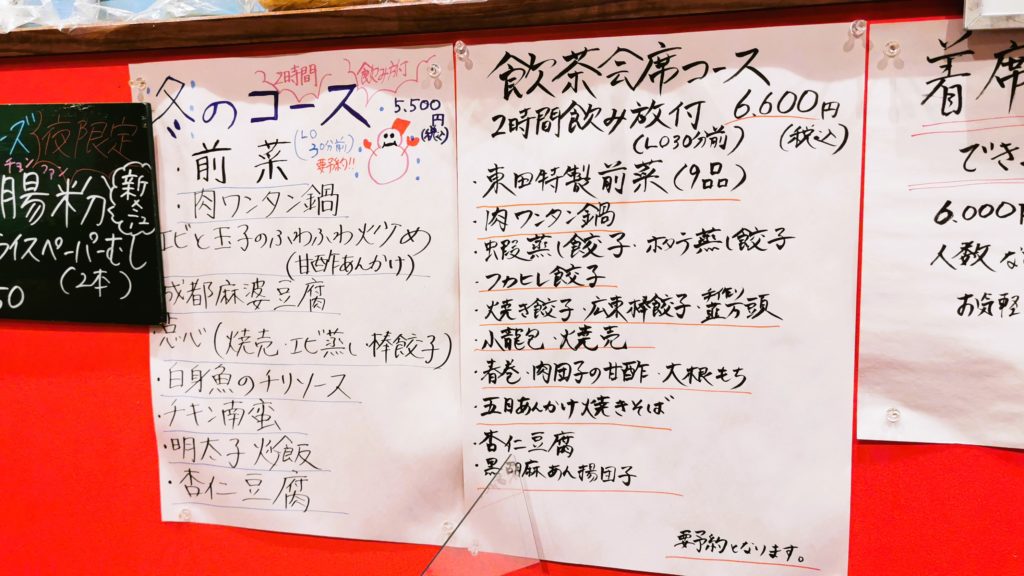 ーズ 夜限定
チョン ファン
腸粉
新メニュー
ライスペーパーむし
(2本)
50
2時間 飲み放付
冬のコース
5.500円
(税込)
(LO30分前)
要予約!!
・前菜
・肉ワンタン鍋
エビと玉子のふわふわ炒め
(甘酢あんかけ)
成都麻婆豆腐
点心(焼売・エビ蒸し・棒餃子)
・白身魚のチリソース
・チキン南蛮
・明太子炒飯
・杏仁豆腐
飲茶会席コース
2時間飲み放付 6.600円
(LO30分前) (税込)
・東田特製前菜(9品)
・肉ワンタン鍋
・虫段蒸し餃子・ホタテ蒸し餃子
・フカヒレ餃子
・焼き餃子・広東棒餃子・手作り
・小龍包・焼売
・春巻・肉団子の甘酢・大根もち
・五目あんかけ焼きそば
・杏仁豆腐
・黒胡麻あん揚団子
要予約となります。
着席
でき
6.000円
人数な
お気軽